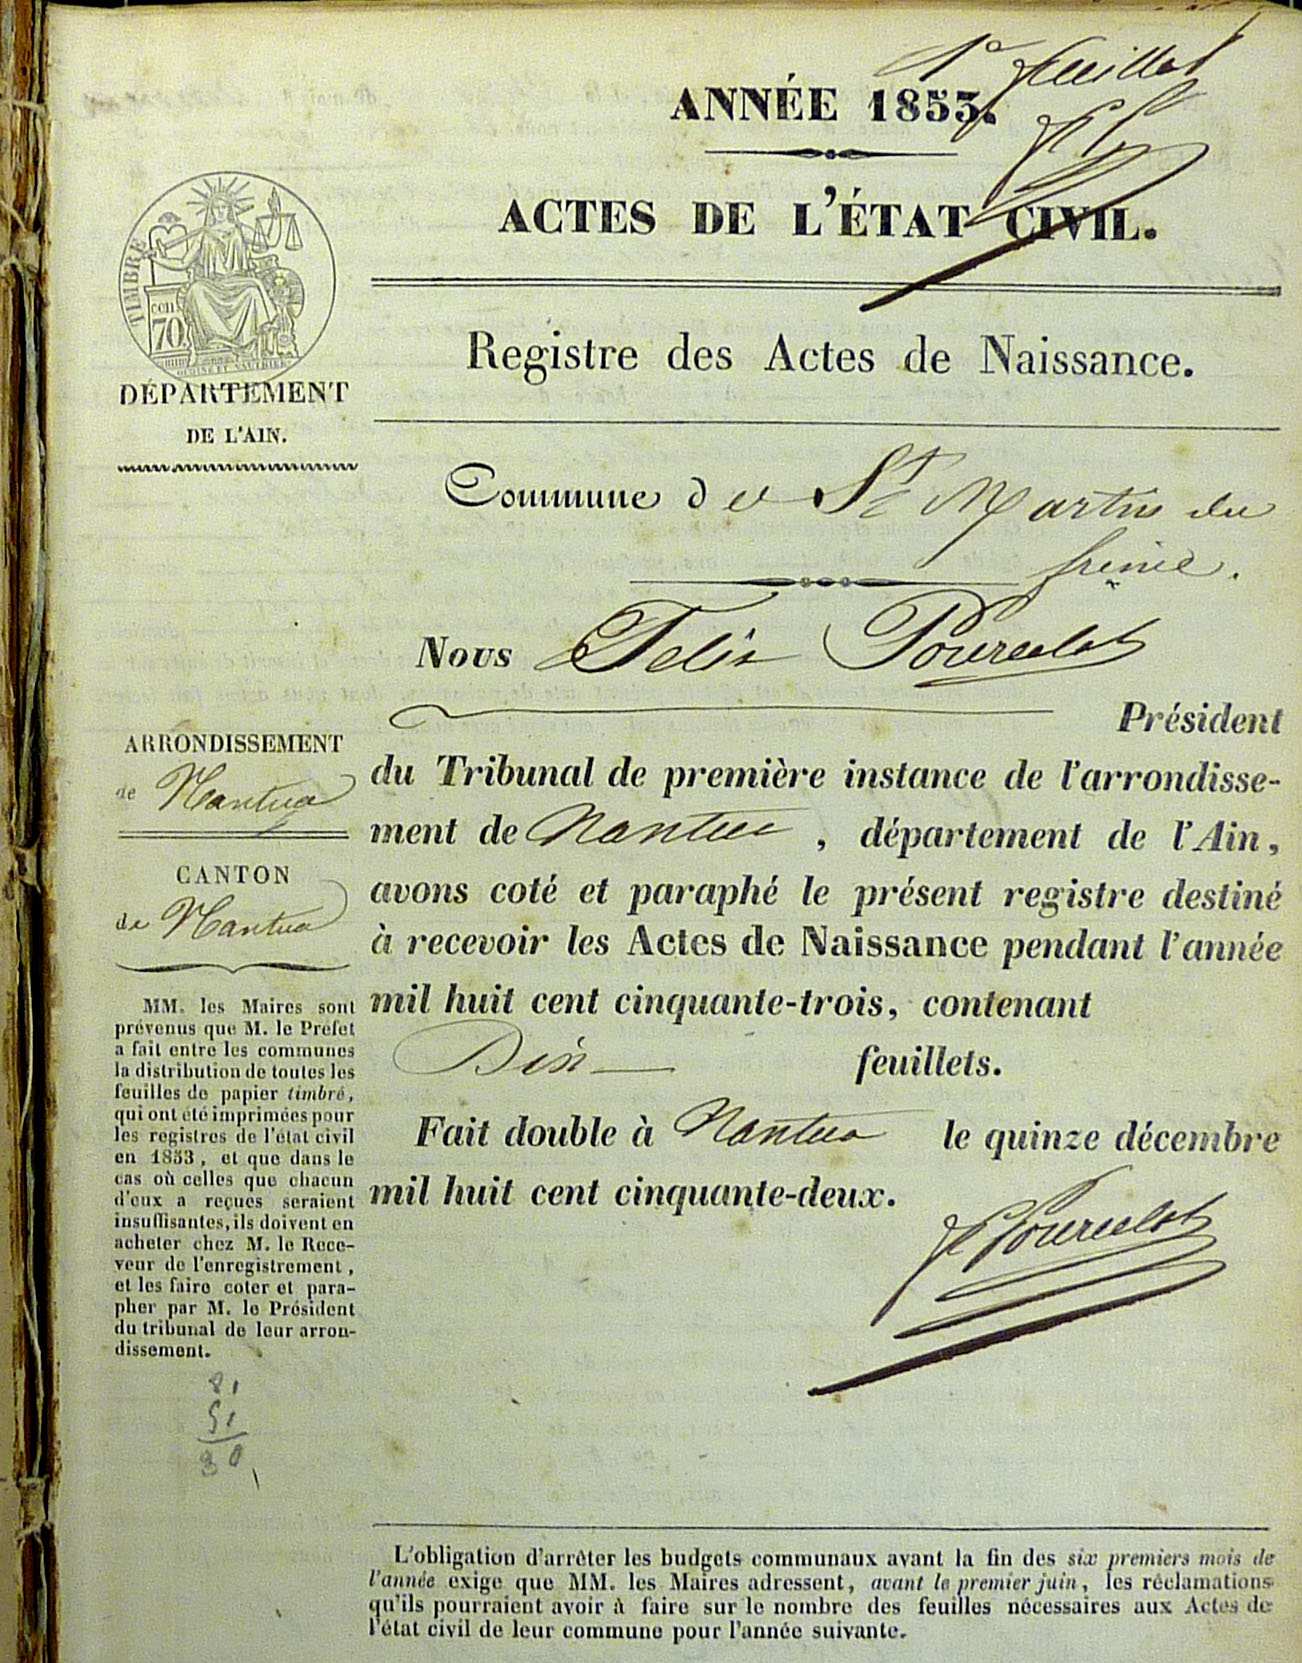 1er feuillet
ANNÉE 1853.
ACTES DE L'ÉTAT CIVIL.
TIMBRE
cen
70
DÉPARTEMENT
DE L'AIN.
Registre des Actes de Naissance.
Commune de St Martin du
frêne.
Nous Felix Pourcelot
Président
du Tribunal de première instance de l'arrondisse-
ment de Nantua, département de l'Ain,
avons coté et paraphé le présent registre destiné
à recevoir les Actes de Naissance pendant l'année
mil huit cent cinquante-trois, contenant
Dix feuillets.
Fait double à Nantua le quinze décembre
mil huit cent cinquante-deux.
F Pourcelot
ARRONDISSEMENT
de Nantua
CANTON
de Nantua
MM. les Maires sont
prévenus que M. le Préfet
a fait entre les communes
la distribution de toutes les
feuilles de papier timbré,
qui ont été imprimées pour
les registres de l'état civil
en 1853, et que dans le
cas où celles que chacun
d'eux a reçues seraient
insuffisantes, ils doivent en
acheter chez M. le Rece-
veur de l'enregistrement,
et les faire coter et para-
pher par M. le Président
du tribunal de leur arron-
dissement.
81
51
30
L'obligation d'arrêter les budgets communaux avant la fin des six premiers mois de
l'année exige que MM. les Maires adressent, avant le premier juin, les réclamations
qu'ils pourraient avoir à faire sur le nombre des feuilles nécessaires aux Actes de
l'état civil de leur commune pour l'année suivante.